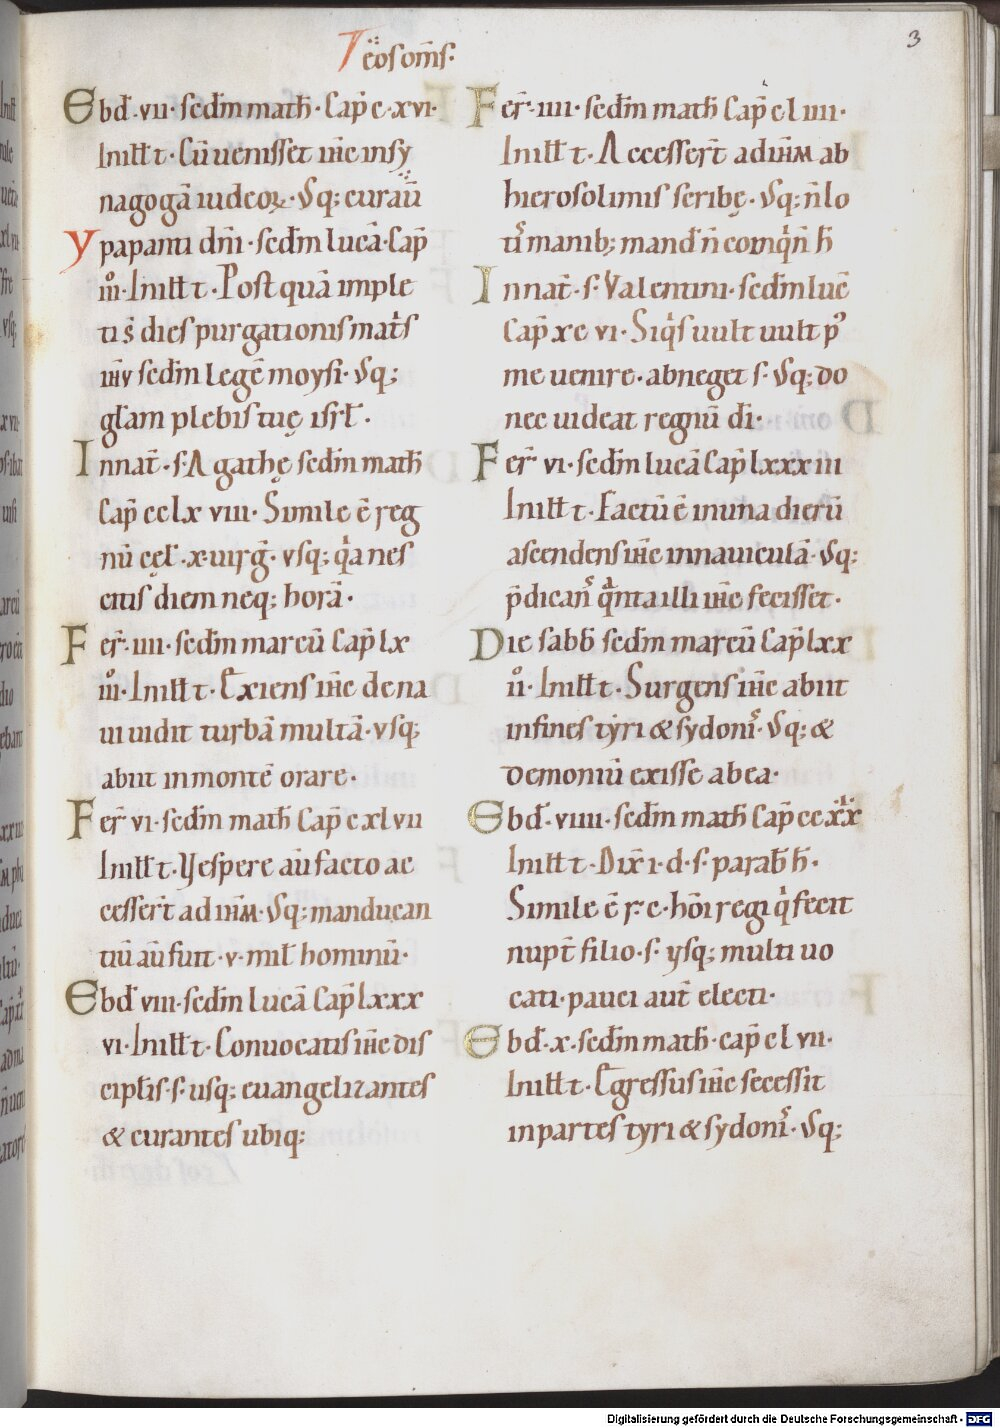 Teosoms.
3
Ebd̄. vii. sed̄m math̄. Cap̄ c. xvi.
Initt̄ t. Cū uenisset ih̄c in sy
nagogā iudeoꝝ. Vsq; curaū
Ypapanti dn̄i. sed̄m lucā. Cap̄
iii. Initt̄ t. Postquā imple
ti s̄ dies purgationis mat̄s
ih̄v sed̄m legē moysi. Vsq;
gl̄am plebis tuę isrł.
In nat̄. s. Agathę sed̄m math̄
Cap̄ cclx viii. Simile ē reg
nū cęł. x. uirḡ. vsq; q̄a nes
citis diem neq; horā.
Fer̄. iiii. sed̄m marcū Cap̄ lx
iii. Initt̄ t. Exiens ih̄c de na
ui uidit turbā multā. vsq;
abiit in montē orare.
Fer̄ vi. sed̄m math̄ Cap̄ c xl vii
Initt̄ t. Vespere aū facto ac
cesser̄t ad ih̄m. Vsq; manducan
tiū aū fuit. v. mił hominū.
Ebd̄ viii. sed̄m lucā Cap̄ lxxx
vi. Initt̄ t. Conuocatis ih̄c dis
ciplīs. s. usq; euangelizantes
& curantes ubiq;
Fer̄. iiii. sed̄m math̄ Cap̄ cl iiii.
Initt̄ t. Accesser̄t ad ih̄m ab
hierosolimis scribę. Vsq; n̄ lo
tis manib; mand̄ n̄ coinq̄n̄ h̄
In nat̄. s. Valentini. sed̄m luc̄
Cap̄ xc vi. Siq̄s uult uult p̄
me uenire. abneget s. Vsq; do
nec uideat regnū dī.
Fer̄ vi. sed̄m lucā Cap̄ lxxx iii
Initt̄ t. Factū ē in una dierū
ascendens ih̄c in nauiculā. Vsq;
p̄dicans̄ q̄nta illi ih̄c fecisset.
Die sabb̄ sed̄m marcū Cap̄ lxx
ii. Initt̄ t. Surgens ih̄c abiit
in fines tyri & sydonis̄. Vsq; &
demoniū exisse ab ea.
Ebd̄. viiii. sed̄m math̄ Cap̄ cc xx
Initt̄ t. Dix̄ i. d. s. parab̄ h̄.
Simile ē r. c. hōi regi q̄ fecit
nupt̄ filio. s. vsq; multi uo
cati. pauci aut̄ electi.
Ebd̄. x. sed̄m math̄. cap̄ cl vii.
Initt̄ t. Egressus ih̄c secessit
in partes tyri & sydonis̄. Vsq;
Digitalisierung gefördert durch die Deutsche Forschungsgemeinschaft - DFG